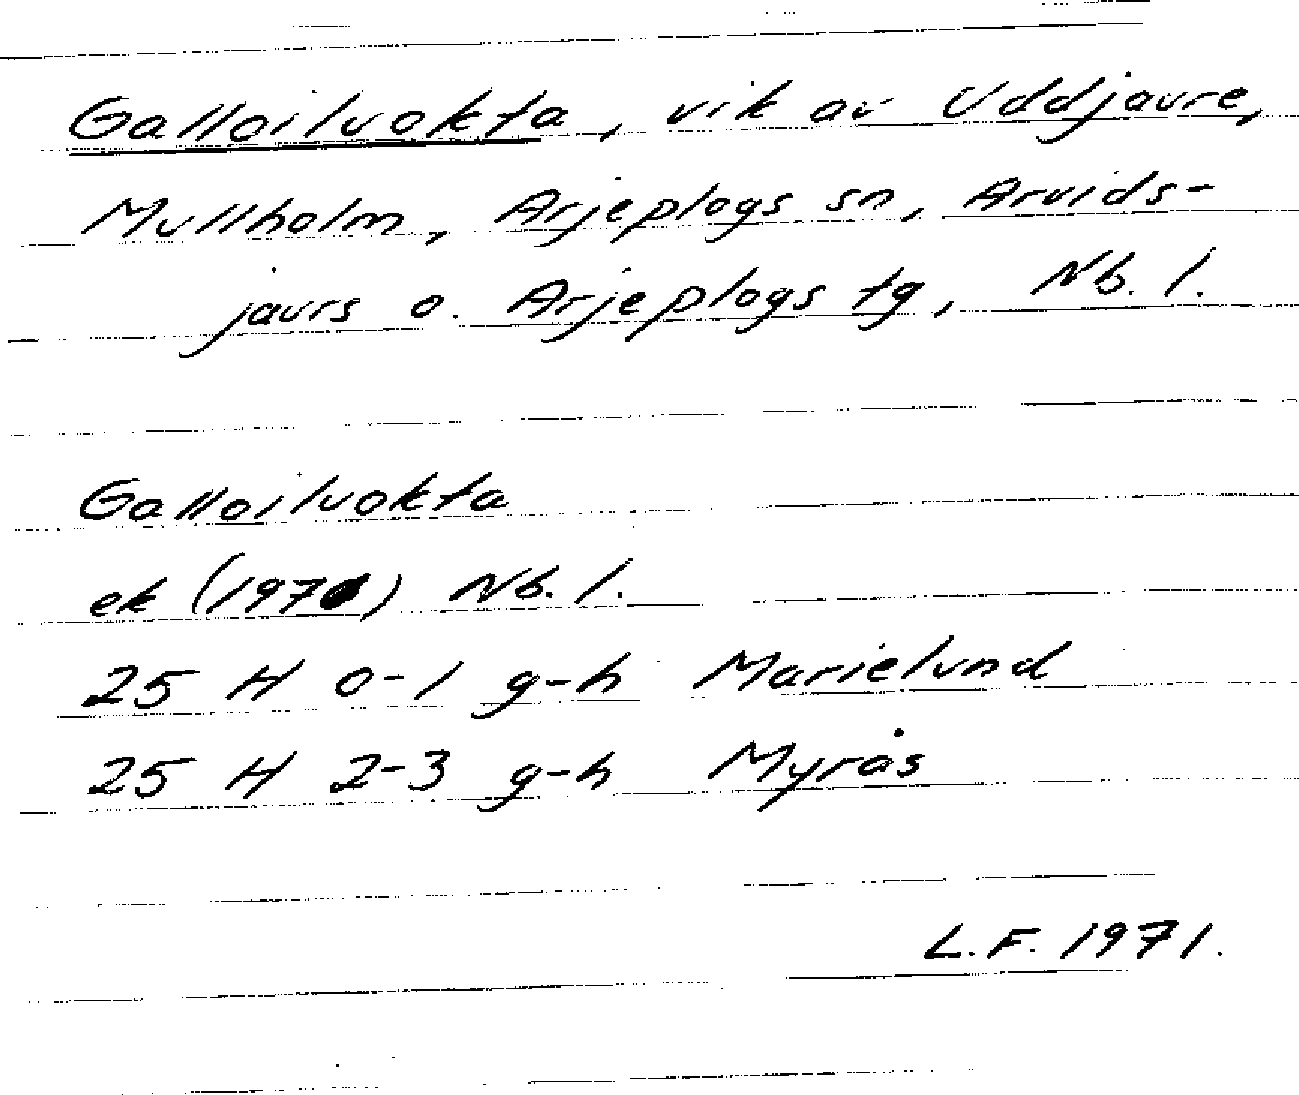 Galloiluokta, vik av Uddjaure,
Mullholm, Arjeplogs sn, Arvids-
jaurs o. Arjeplogs tg, Nb. l.
Galloiluokta
ek (1970) Nb. l.
25 H 0-1 g-h Marielund
25 H 2-3 g-h Myrås
L.F. 1971.